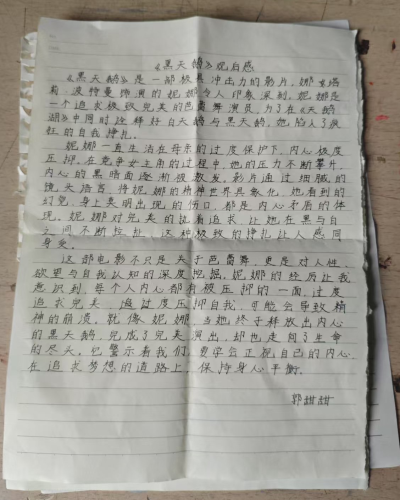 《黑天鹅》观后感
《黑天鹅》是一部极具冲击力的影片,娜塔
莉·波特曼饰演的妮娜令人印象深刻。妮娜是
一个追求极致完美的芭蕾舞演员,为了在《天鹅
湖》中同时诠释好白天鹅与黑天鹅,她陷入了疯
狂的自我挣扎。
妮娜一直生活在母亲的过度保护下,内心极度
压抑。在竞争女主角的过程中,她的压力不断攀升,
内心的黑暗面逐渐被激发。影片通过细腻的
镜头语言,将妮娜的精神世界具象化,她看到的
幻觉、身上莫明出现的伤口,都是内心矛盾的体
现。妮娜对完美的执着追求,让她在黑与白
之间不断拉扯,这种极致的挣扎让人感同
身受。
这部电影不只是关于芭蕾舞,更是对人性、
欲望与自我认知的深度挖掘。妮娜的经历让我
意识到,每个人内心都有被压抑的一面,过度
追求完美、过度压抑自我,可能会导致精
神的崩溃。就像妮娜,当她终于释放出内心
的黑天鹅,完成了完美演出,却也走向了生命
的尽头。它警示着我们,要学会正视自己的内心,
在追求梦想的道路上,保持身心平衡。
郭甜甜